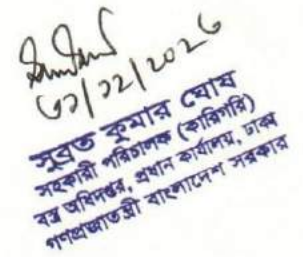 ৩১/১২/২০২৩
সুব্রত কুমার ঘোষ
সহকারী পরিচালক (কারিগরি)
বস্ত্র অধিদপ্তর, প্রধান কার্যালয়, ঢাকা
গণপ্রজাতন্ত্রী বাংলাদেশ সরকার